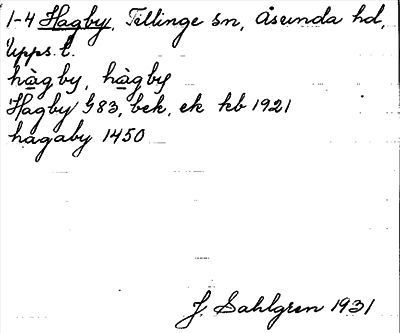 1-4 Hagby, Tillinge sn, Åsunda hd,
Upps. l.
hàgby, hàgby
Hagby G83, bek, ek kb 1921
hagaby 1450
J. Sahlgren 1931